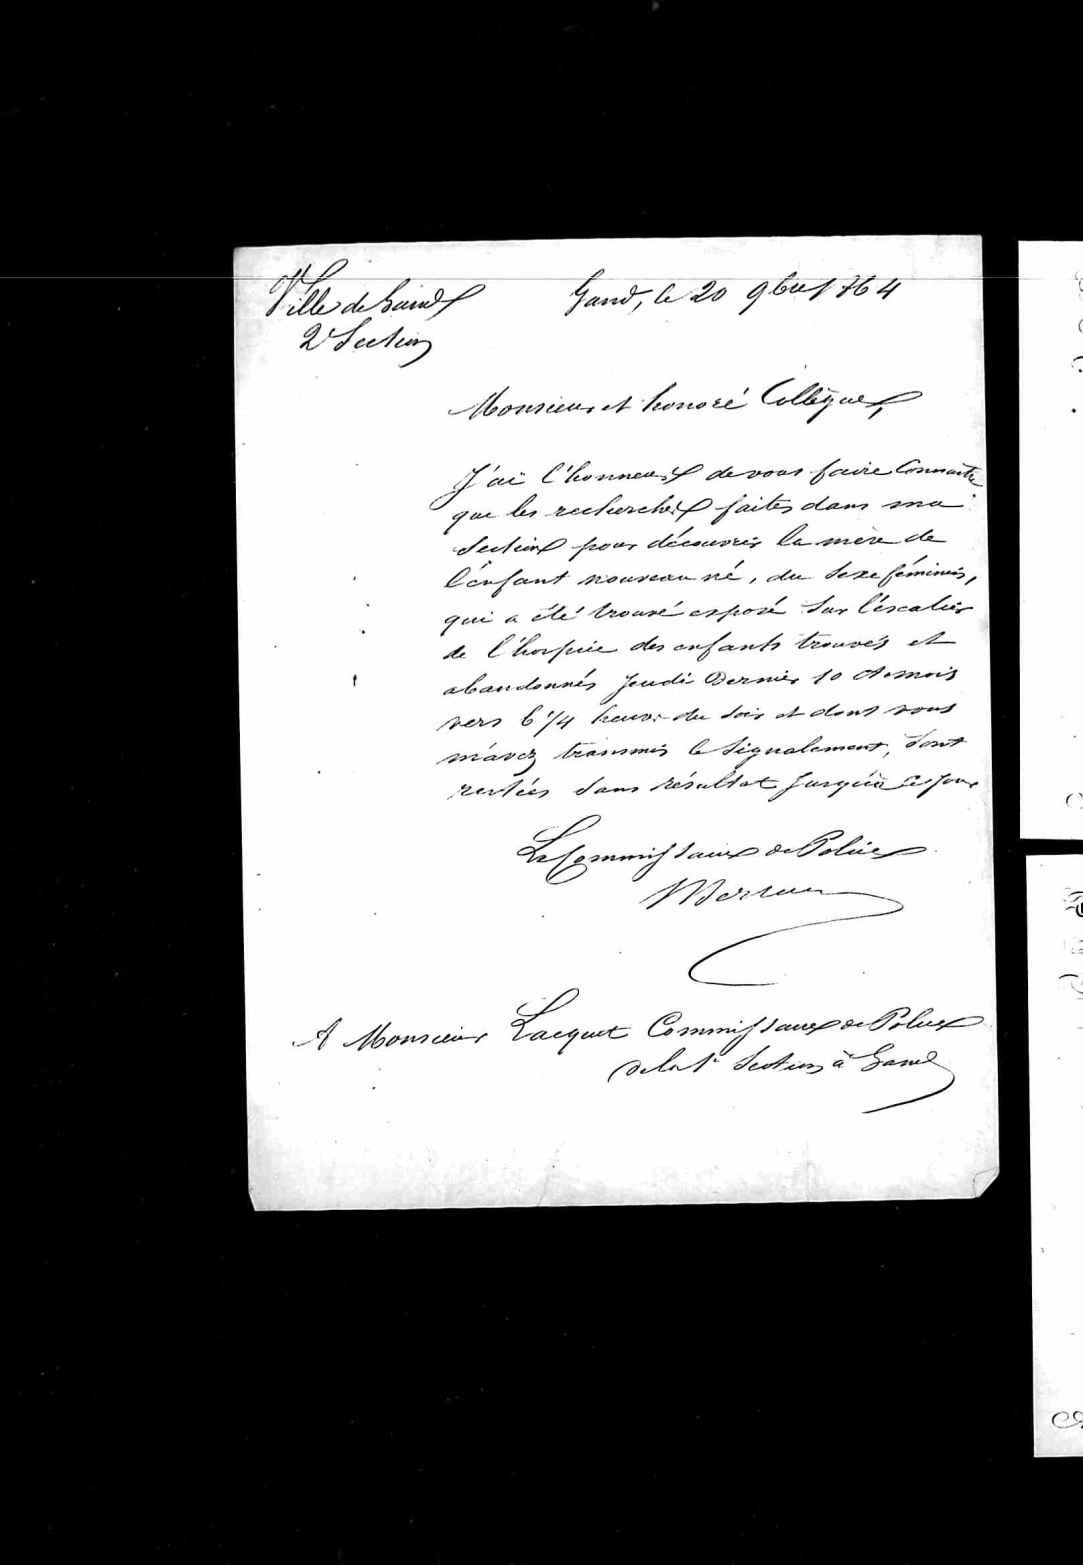 Ville de Gand
2e Section
Gand, le 20 9bre 1864
Monsieur et honoré Collègue,
J'ai l'honneur de vous faire Connaitre
que les recherches faites dans ma
Section pour découvrir la mère de
l'énfant nouveau né, du Sexe féminin,
qui a été trouvé exposé Sur l'éscalier
de l'hospice des enfants trouvés et
abandonnés Jeudi Dernier 10 de mois
vers 6 1/4 heures du Soir et dont vous
m'avez transmis le Signalement, Sont
restées Sans résultat Jusqu'à ce Jour
Le Commissaire de Police
A Monsieur Lacquet Commissaire de Police
de la 1e Section à Gand